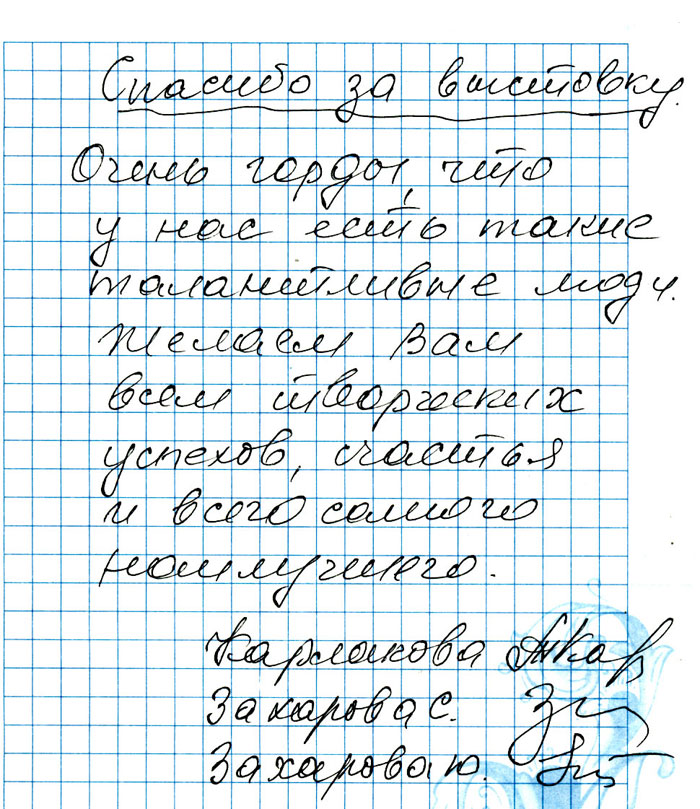 Спасибо за выставку.
Очень горды, что
у нас есть такие
талантливые люди.
Желаем Вам
всем творческих
успехов, счастья
и всего самого
наилучшего.
Карлакова
Захарова С.
Захарова Ю.